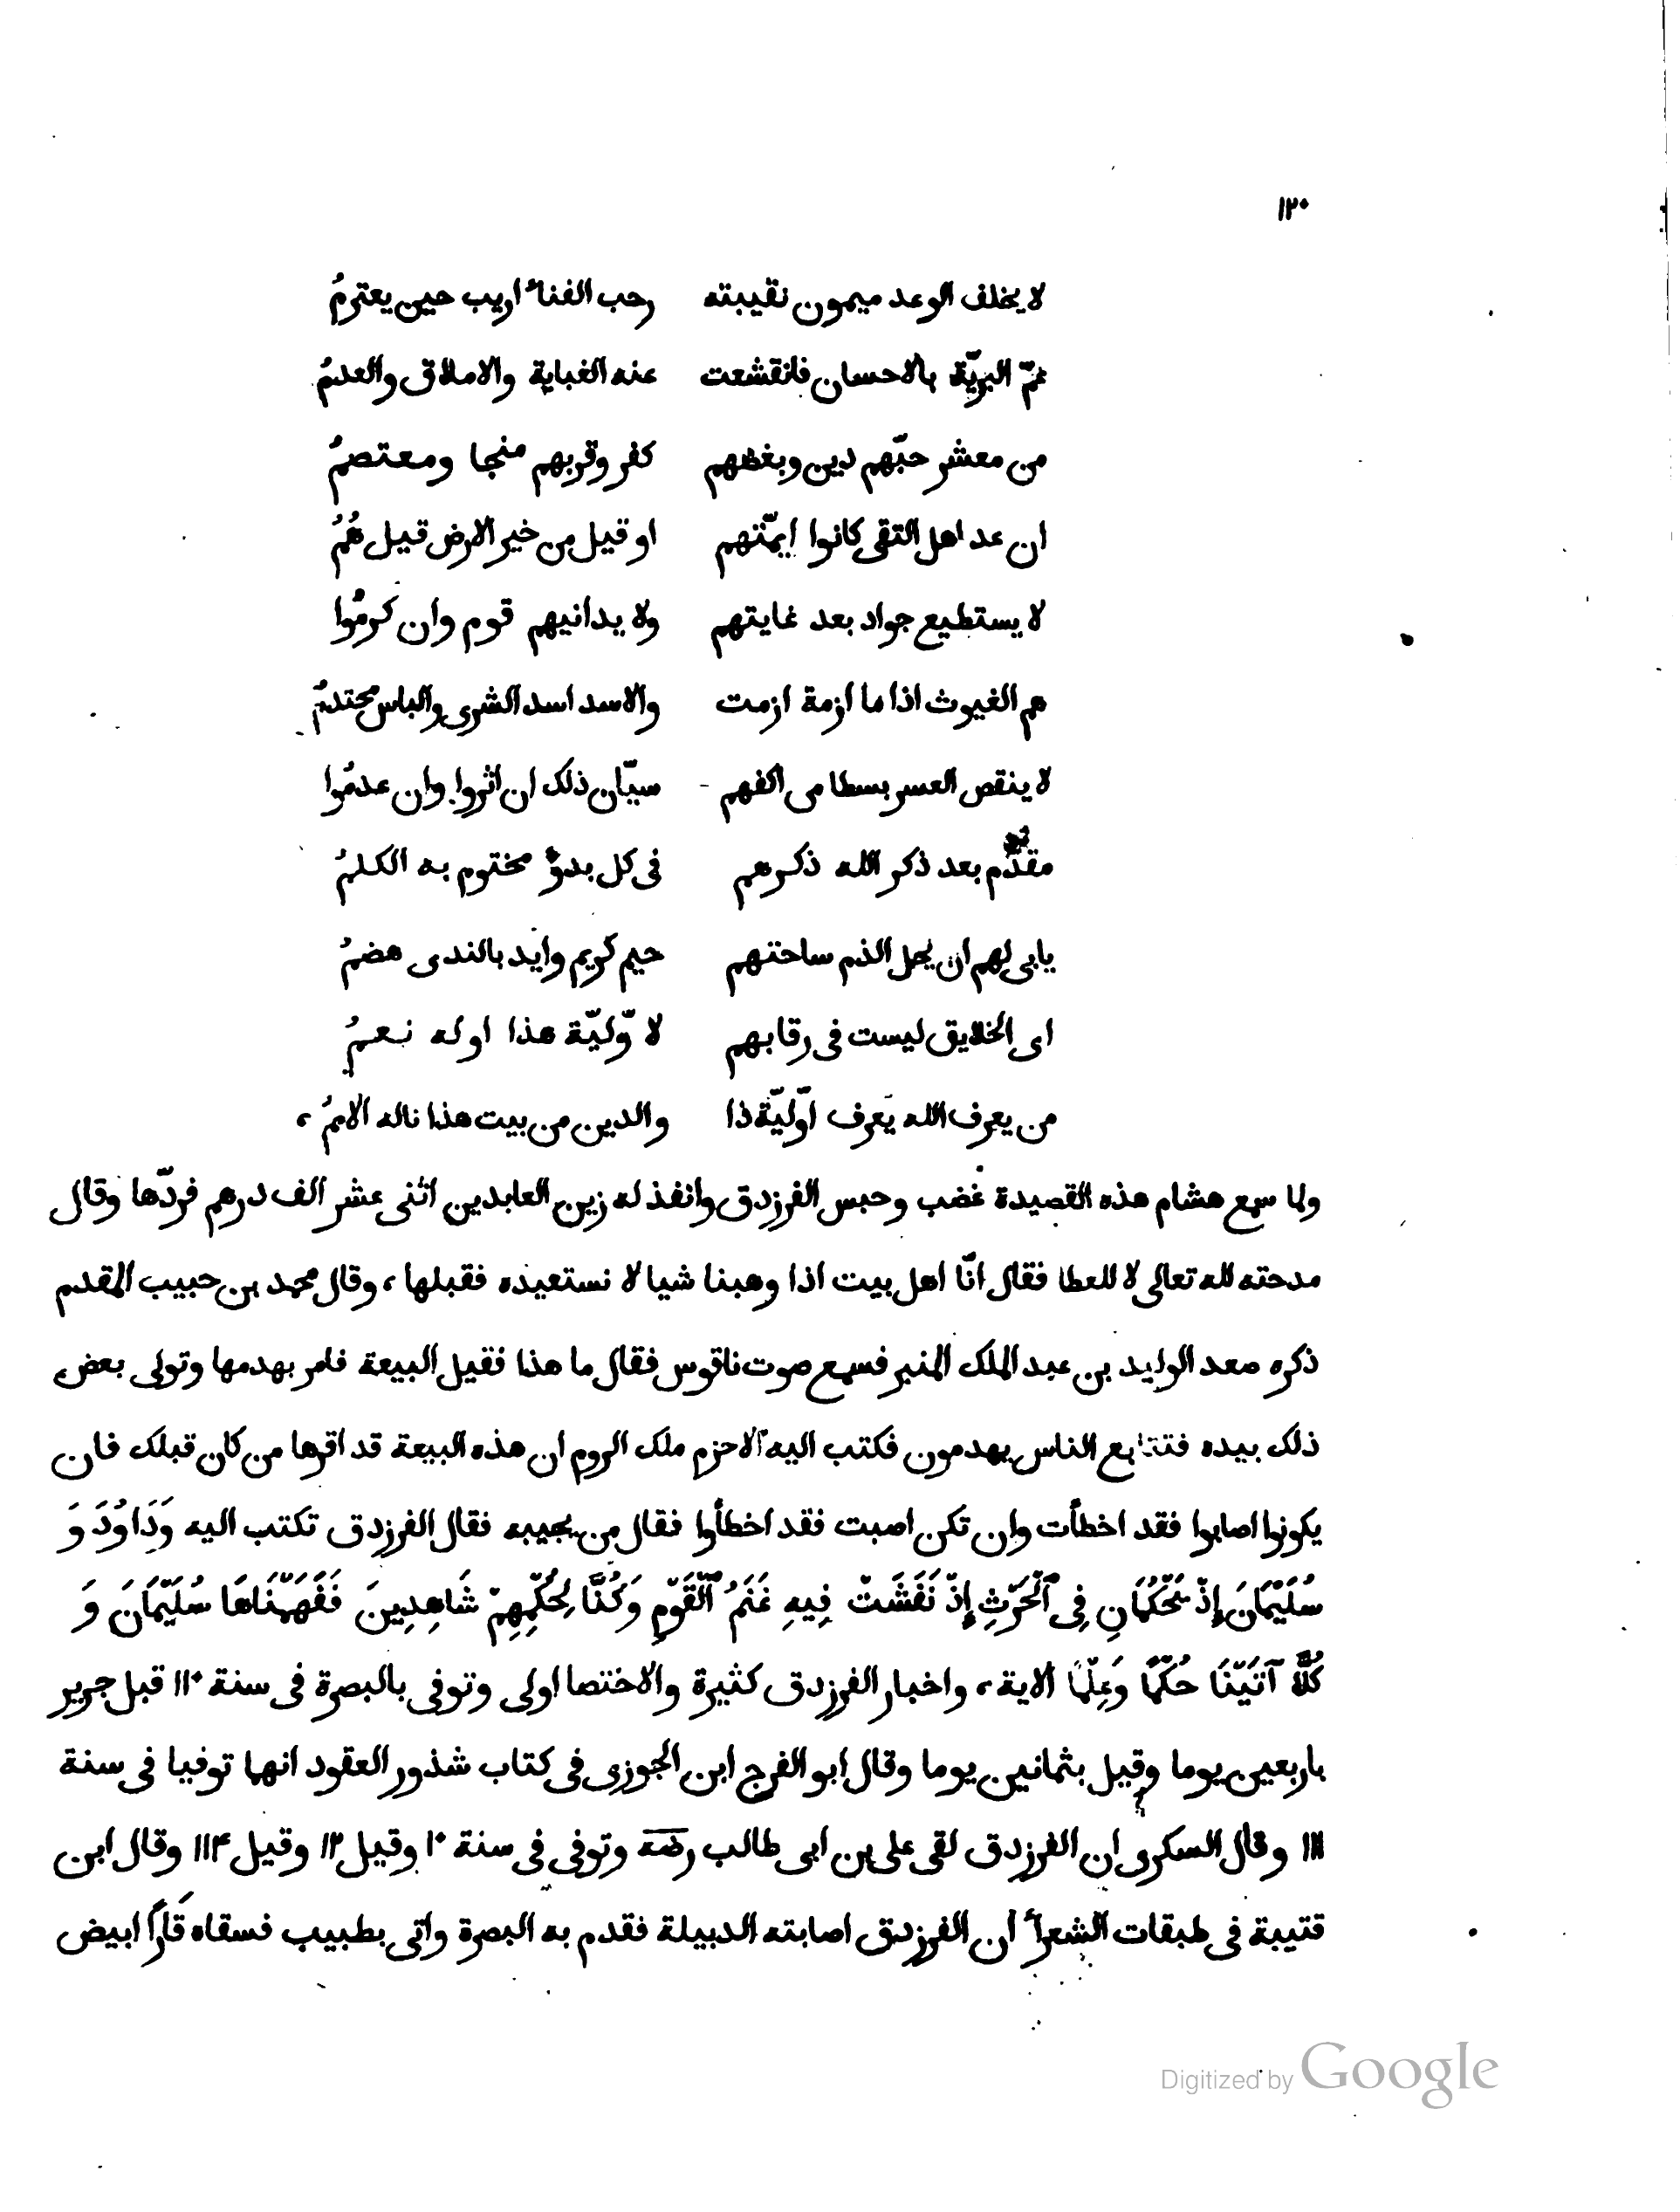 ١٢٠
لا يخلف الوعد ميمون نقيبته رحب الفناء اريب حين يعترمُ
عمّ البريّة بالاحسان فانقشعت عنه الغياية والاملاق والعدمُ
من معشر حبّهم دين وبغضهم كفر وقربهم منجا ومعتصمُ
ان عد اهل التقى كانوا ايمّتهم او قيل من خير الارض قيل هُمُ
لا يستطيع جواد بعد غايتهم ولا يدانيهم قوم وان كرمُوا
هم الغيوث اذا ما ازمة ازمت والاسد اسد الشرى والباس محتدمُ
لا ينقص العسر بسطا من اكفهم سيّان ذلك ان اثروا وان عدمُوا
مقدّم بعد ذكر الله ذكرهم فى كل بدوٍ مختوم به الكلمُ
يابى لهم ان يحل الذم ساحتهم خيم كريم وايد بالندى هضمُ
اى الخلايق ليست فى رقابهم لاوّليّة هذا اوله نعمُ
من يعرف الله يعرف اوّليّة ذا والدين من بيت هذا ناله الاممُ ،
ولما سمع هشام هذه القصيدة غضب وحبس الفرزدق وانفذ له زين العابدين اثنى عشر الف درهم فردّها وقال
مدحته لله تعالى لا للعطا فقال انّا اهل بيت اذا وهبنا شيا لا نستعيده فقبلها ، وقال محمد بن حبيب المقدم
ذكره صعد الوليد بن عبد الملك المنبر فسمع صوت ناقوس فقال ما هذا فقيل البيعة فامر بهدمها وتولى بعض
ذلك بيده فتتابع الناس يهدمون فكتب اليه الاحزم ملك الروم ان هذه البيعة قد اقرها من كان قبلك فان
يكونوا اصابوا فقد اخطأت وان تكن اصبت فقد اخطأوا فقال من يجيبه فقال الفرزدق تكتب اليه وَدَاوُدَ وَ
سُلَيْمَانَ إِذْ يَحْكُمَانِ فِى ٱلْحَرْثِ إِذْ نَفَشَتْ فِيهِ غَنَمُ ٱلْقَوْمِ وَكُنَّا لِحُكْمِهِمْ شَاهِدِينَ فَفَهَّمْنَاهَا سُلَيْمَانَ وَ
كُلًّا آتَيْنَا حُكْمًا وَعِلْمًا الاية ، واخبار الفرزدق كثيرة والاختصا اولى وتوفى بالبصرة فى سنة ١١٠ قبل جرير
باربعين يوما وقيل بثمانين يوما وقال ابو الفرج ابن الجوزى فى كتاب شذور العقود انهما توفيا فى سنة
١١١ وقال السكرى ان الفرزدق لقى على بن ابى طالب رضه وتوفى فى سنة ١٠ وقيل ١٢ وقيل ١١۴ وقال ابن
قتيبة فى طبقات الشعراء ان الفرزدق اصابته الدبيلة فقدم به البصرة واتى بطبيب فسقاه قَارًا ابيض
Digitized by Google